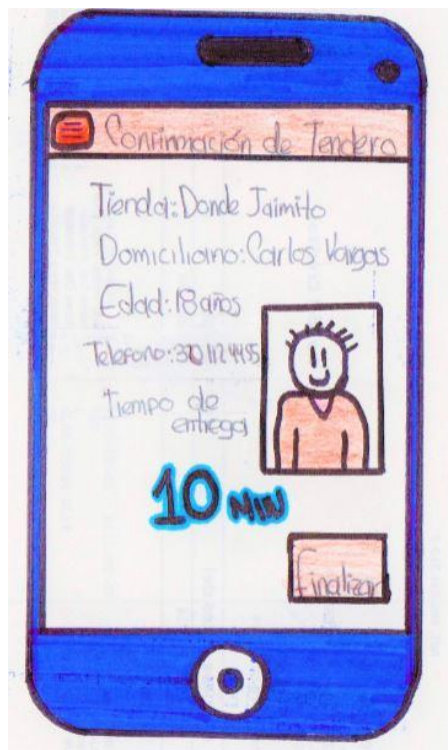 Confirmación de Tendero
Tienda: Donde Jaimito
Domiciliario: Carlos Vargas
Edad: 18 años
Telefono:
Tiempo de
entrega
10 MIN
Finalizar